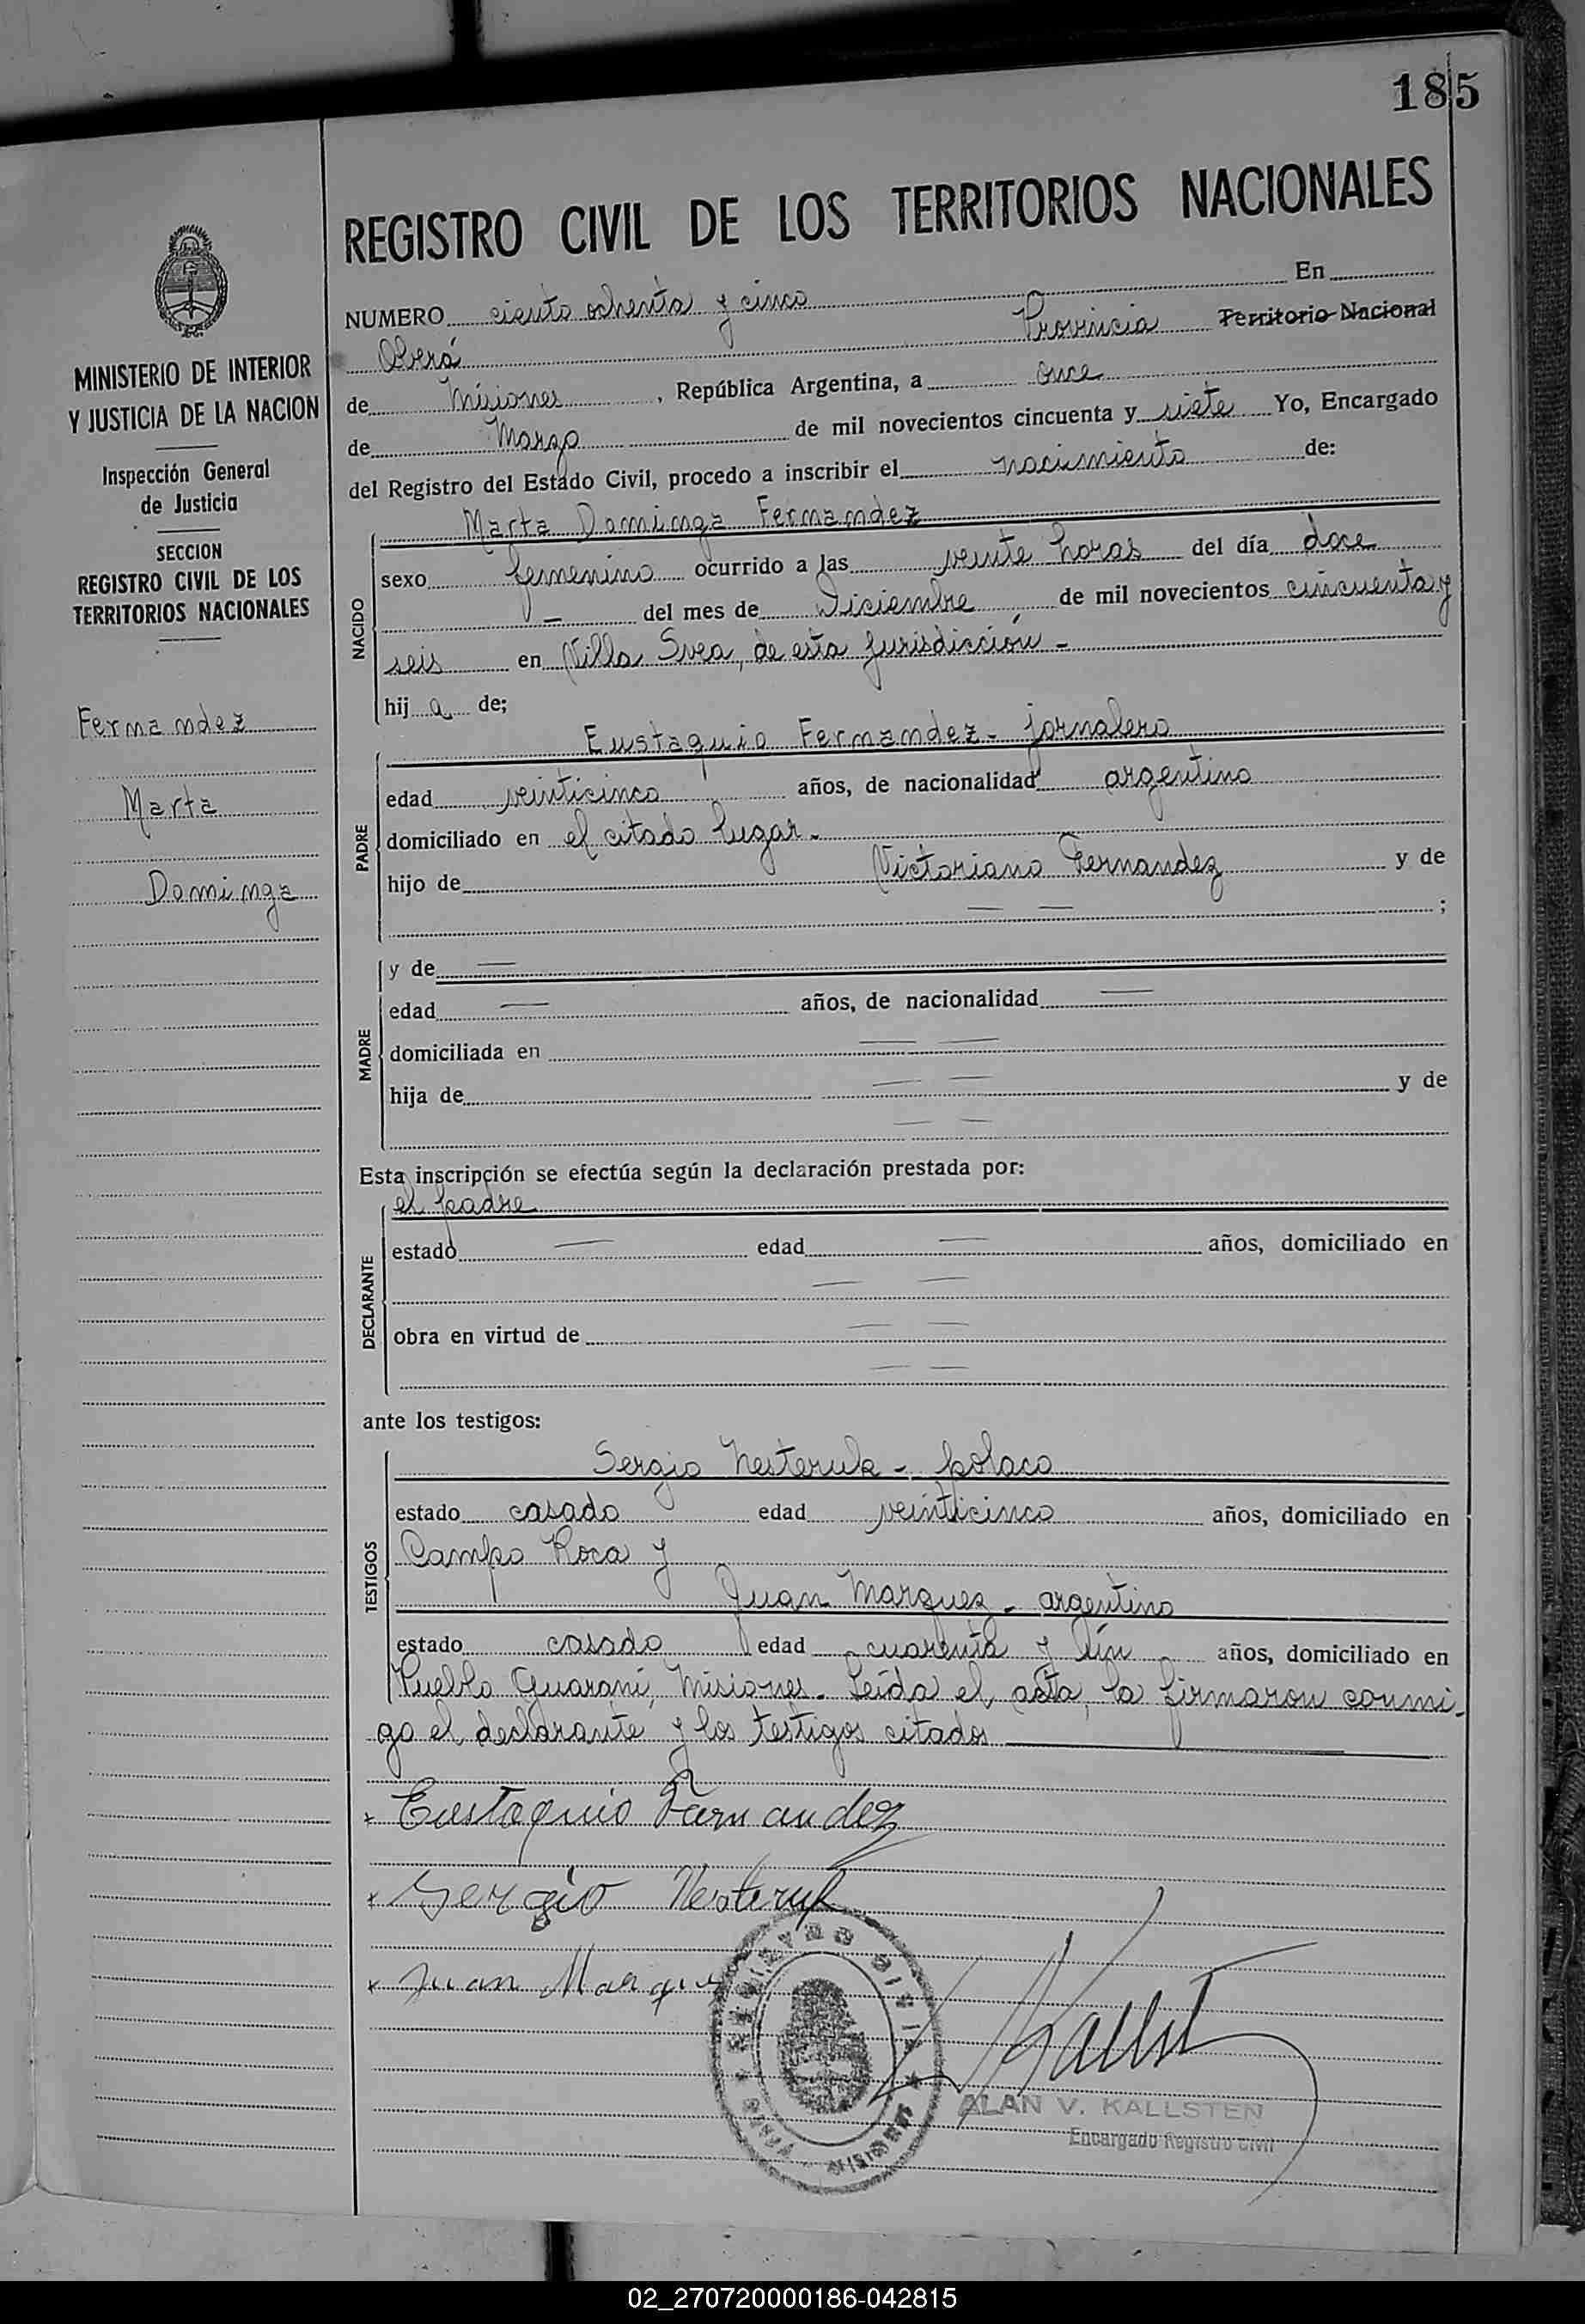 185
REGISTRO CIVIL DE LOS TERRITORIOS NACIONALES
MINISTERIO DE INTERIOR
Y JUSTICIA DE LA NACION
Inspección General
de Justicia
SECCION
REGISTRO CIVIL DE LOS
TERRITORIOS NACIONALES
Fernandez
Marta
Dominga
NUMERO ciento ochenta y cinco En
Oberá Provincia Territorio Nacional
de Misiones, República Argentina, a once
de Marzo de mil novecientos cincuenta y siete Yo, Encargado
del Registro del Estado Civil, procedo a inscribir el nacimiento de:
NACIDO
Marta Dominga Fernandez
sexo femenino ocurrido a las veinte horas del día doce
— del mes de Diciembre de mil novecientos cincuenta y
seis en Villa Svea, de esta jurisdicción -
hij a de;
PADRE
Eustaquio Fernandez - jornalero
edad veinticinco años, de nacionalidad argentino
domiciliado en el citado lugar -
hijo de Victoriano Fernandez y de
— — ;
MADRE
y de —
edad — años, de nacionalidad —
domiciliada en — —
hija de — — y de
— —
Esta inscripción se efectúa según la declaración prestada por:
DECLARANTE
el padre
estado — edad — años, domiciliado en
— —
obra en virtud de — —
— —
ante los testigos:
TESTIGOS
Sergio Nesteruk - polaco
estado casado edad veinticinco años, domiciliado en
Campo Roca y
Juan Marquez - argentino
estado casado edad cuarenta y ún años, domiciliado en
Pueblo Guaraní, Misiones. Leída el acta, la firmaron conmi-
go el declarante y los testigos citados
x Eustaquio Fernandez
x Sergio Nesteruk
x Juan Marque
ALAN V. KALLSTEN
Encargado Registro Civil
02_270720000186-042815